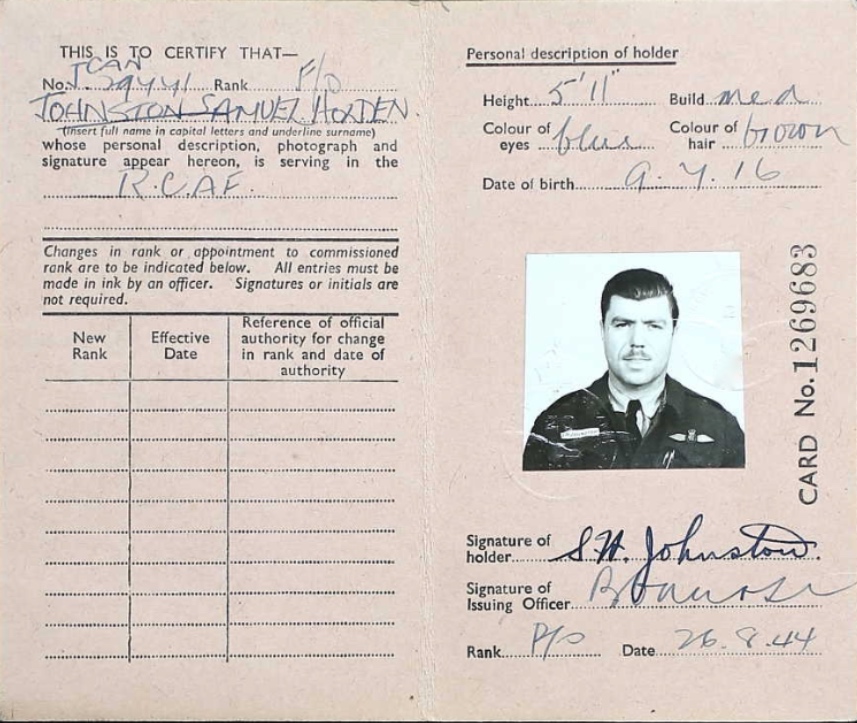 THIS IS TO CERTIFY THAT—
CAN
No. J. 29441 Rank F/O
JOHNSTON SAMUEL HOLDEN.
(Insert full name in capital letters and underline surname)
whose personal description, photograph and
signature appear hereon, is serving in the
R.C.A.F.
Changes in rank or appointment to commissioned
rank are to be indicated below. All entries must be
made in ink by an officer. Signatures or initials are
not required.
New Rank
Effective Date
Reference of official authority for change in rank and date of authority
Personal description of holder
Height 5' 11" Build med
Colour of eyes blue Colour of hair brown
Date of birth 9.7.16
CARD No. 1269683
Signature of holder S.H. Johnston.
Signature of Issuing Officer
Rank P/O Date 26.8.44